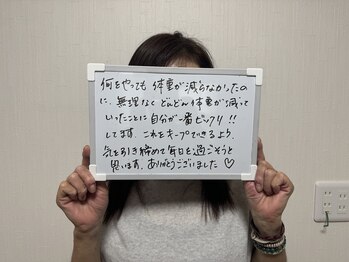 何をやっても体重が減らなかったの
に、無理なくどんどん体重が減って
いったことに自分が一番ビックリ!!
してます。これをキープできるよう、
気を引き締めて毎日を過ごそうと
思います。ありがとうございました♡